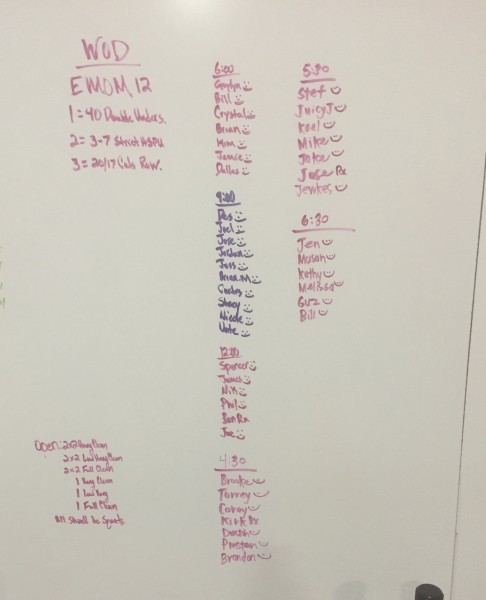 WOD
EMOM 12
1 = 40 Double Unders.
2 = 3-7 Strict HSPU
3 = 20/17 Cals Row.
6:00
Bill
Crystal
Brian
Kim
Jamie
Dallas
9:00
Des
Joel
Jose
Jordan
Joss
Brian.M
Carlos
Stacy
Nicole
Nate
12:00
Spencer
James
Nik
Phil
Ben Rx
Joe
4:30
Brooke
Torrey
Corey
Kirk Rx
Preston
Brandon
5:30
Stef
Juicy J
Keel
Mike
Jake
Jose Rx
Jewkes
6:30
Jen
Kathy
Melissa
Guz
Bill
Open: 2x2 Hang Clean
2x2 Low Hang Clean
2x2 Full Clean
1 Hang Clean
1 Low Hang
1 Full Clean
All Should be Squats